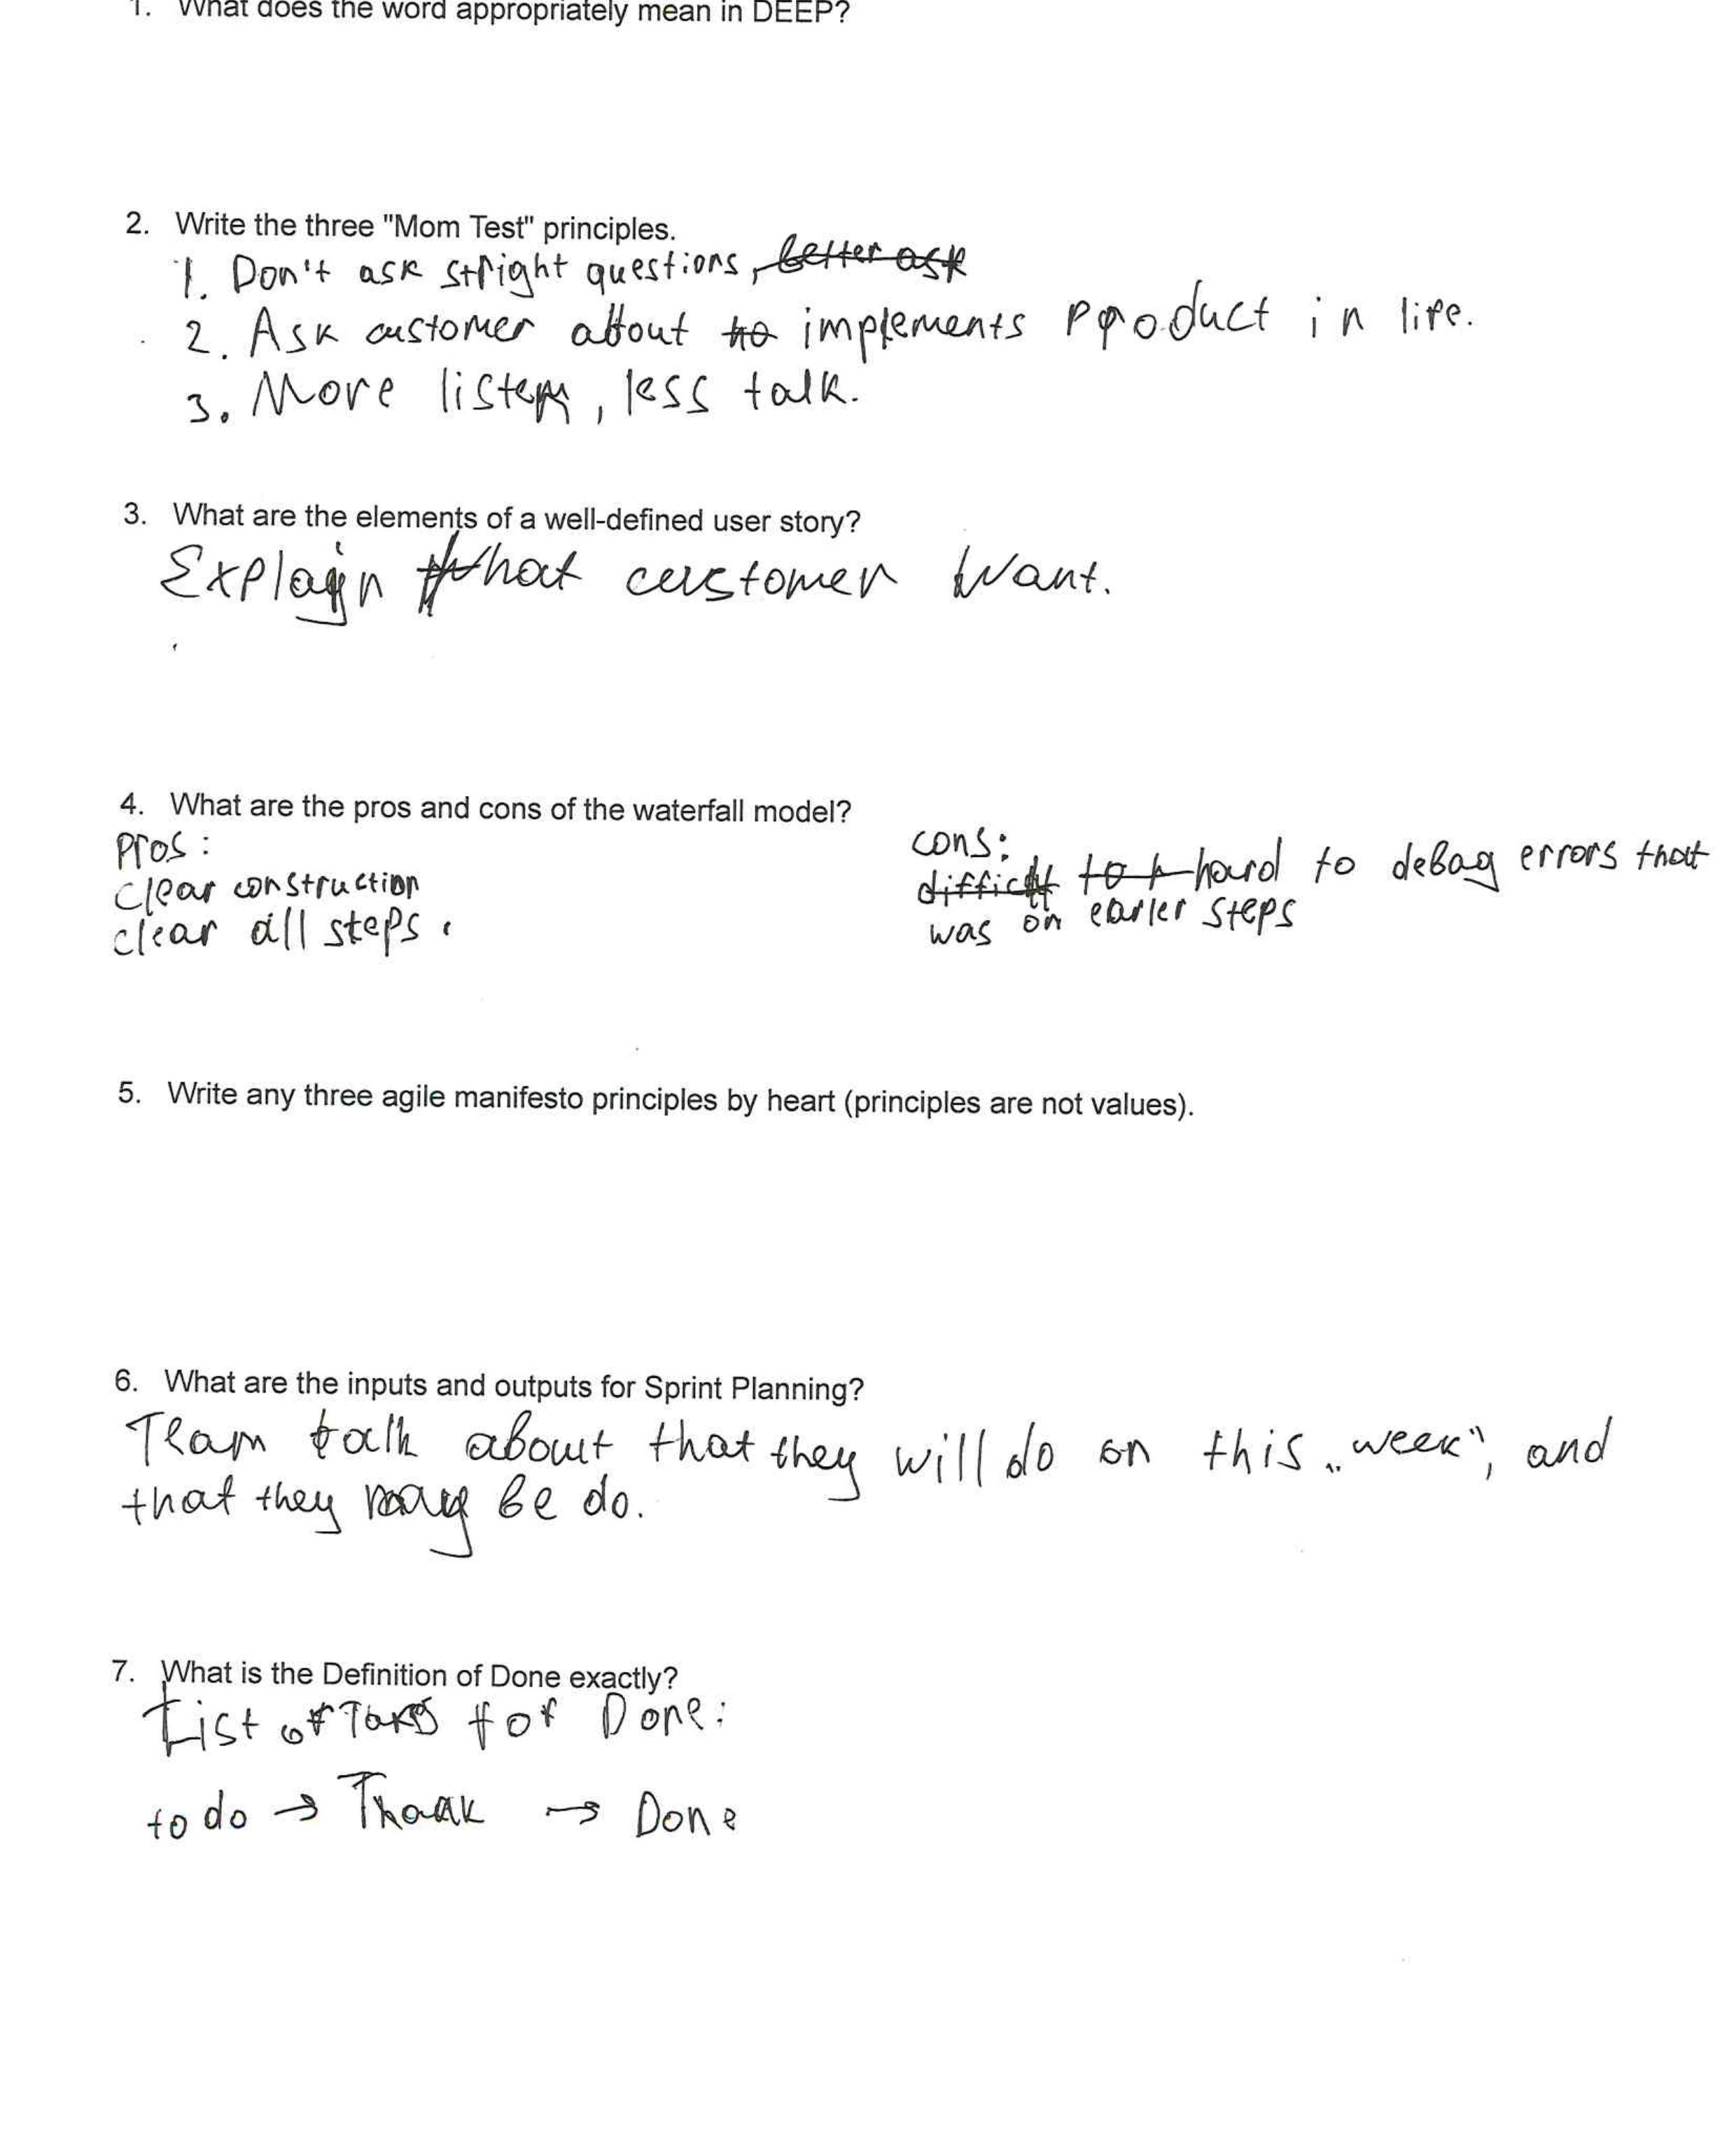 1. What does the word appropriately mean in DEEP?
2. Write the three "Mom Test" principles.
1. Don't ask stright questions, better ask
2. Ask customer about to implements product in life.
3. More listen, less talk.
3. What are the elements of a well-defined user story?
Explain what customer want.
4. What are the pros and cons of the waterfall model?
pros:
clear construction
clear all steps.
cons:
difficult to hard to debag errors that
was on earler steps
5. Write any three agile manifesto principles by heart (principles are not values).
6. What are the inputs and outputs for Sprint Planning?
Team talk about that they will do on this „week", and
that they may be do.
7. What is the Definition of Done exactly?
List of for Done:
to do → → Done